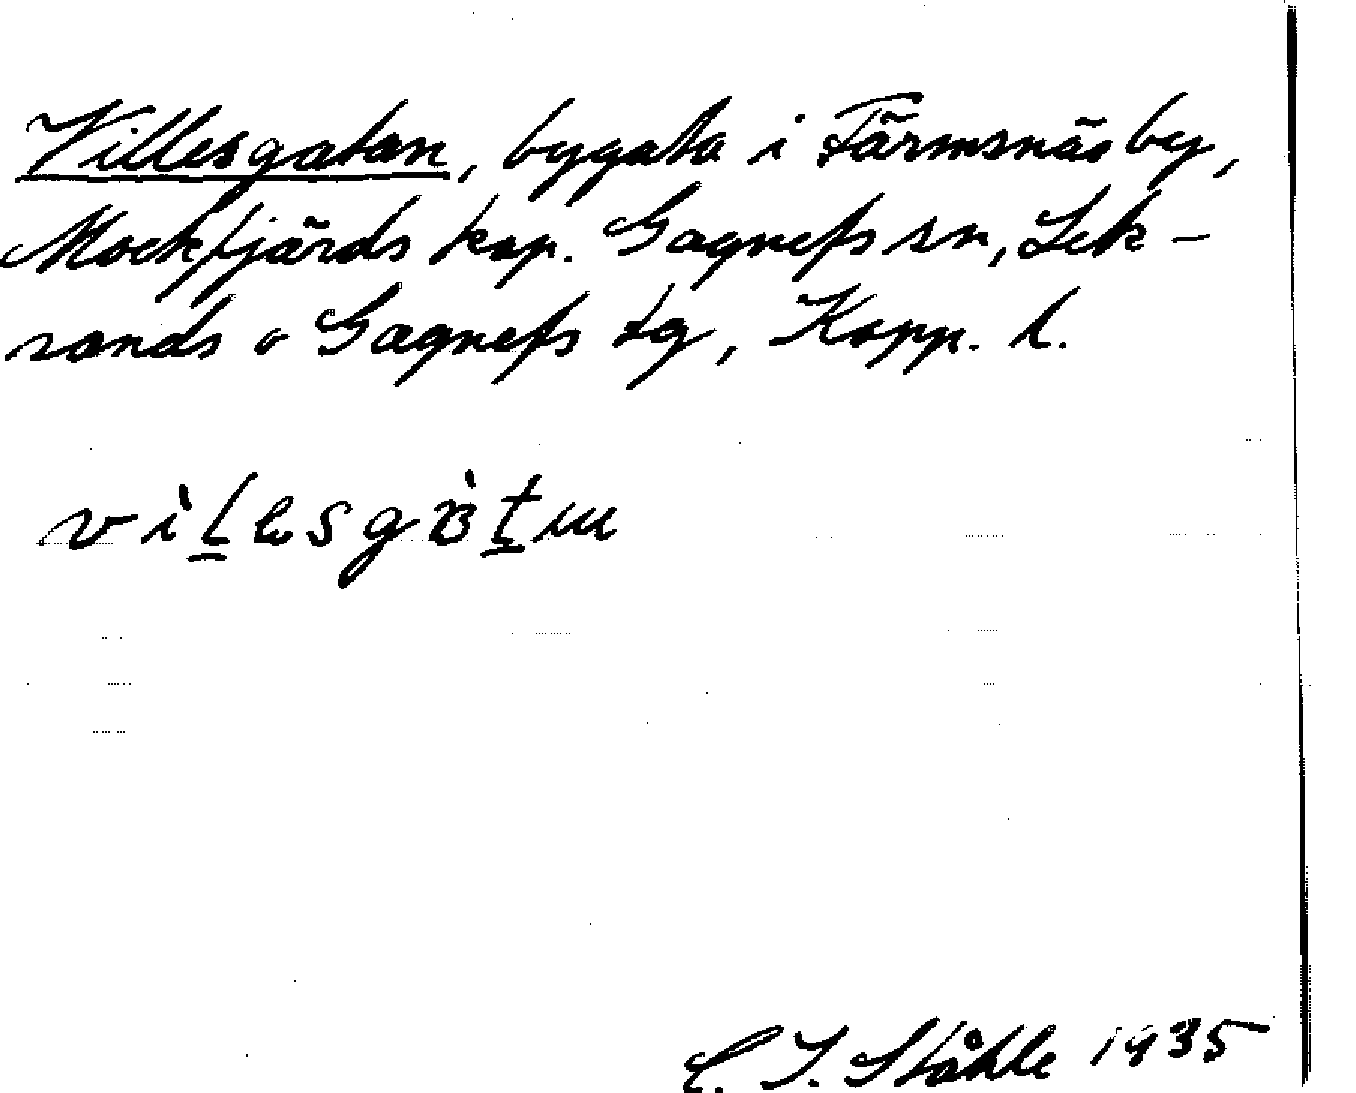 Villesgatan, bygata i Färmsnäs by,
Mockfjärds kap. Gagnefs sn, Lek-
sands o Gagnefs tg, Kopp. l.
C. I. Ståhle 1935